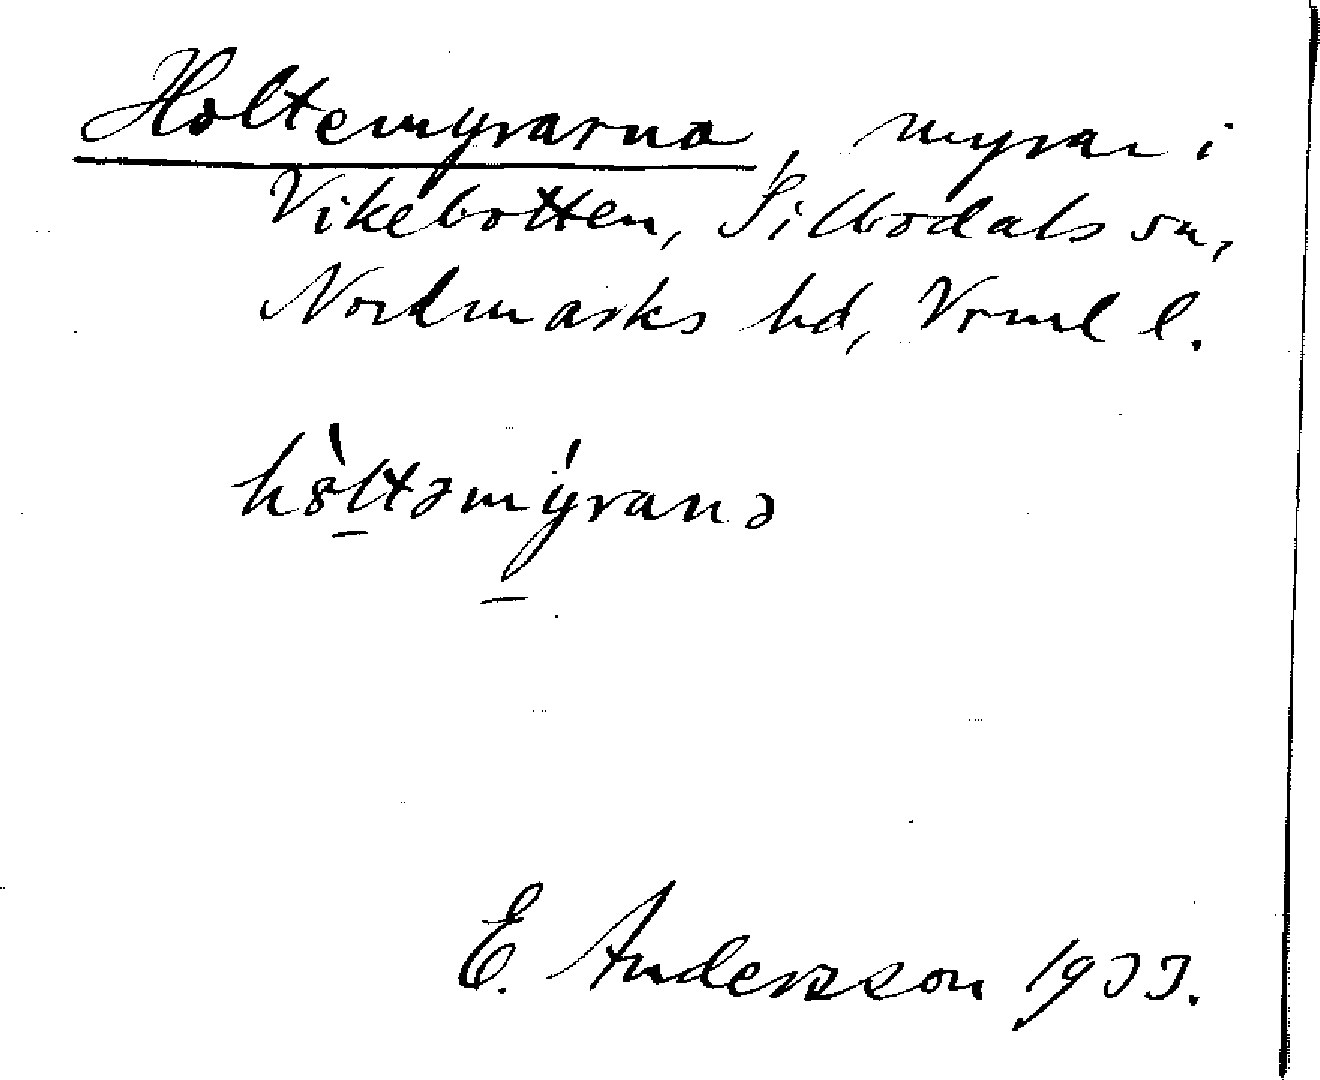 Holtemyrarna, myrar i
Vikebotten, Silbodals sn,
Nordmarks hd, Vrml l.
hòltəmýranə
E. Andersson 1933.